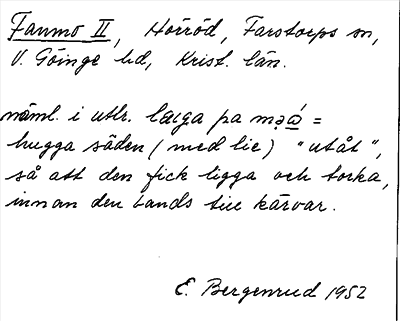 Fanmo II, Hörröd, Farstorps sn,
V. Göinge hd, Krist. län.
näml. i uttr. lægga pa =
hugga säden (med lie) "utåt",
så att den fick ligga och torka,
innan den bands till kärvar.
E. Bergenrud 1952